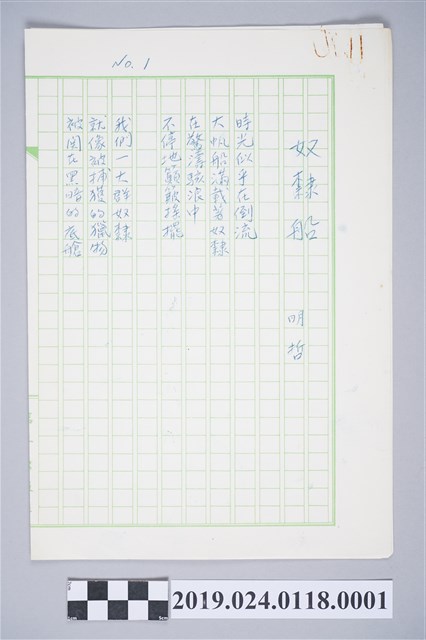 No. 1
奴隸船
明哲
時光似乎在倒流
大帆船滿載著奴隸
在驚濤駭浪中
不停地顛簸搖擺
我們一大群奴隸
就像被捕獲的獵物
被関在黑暗的底艙
2019.024.0118.0001